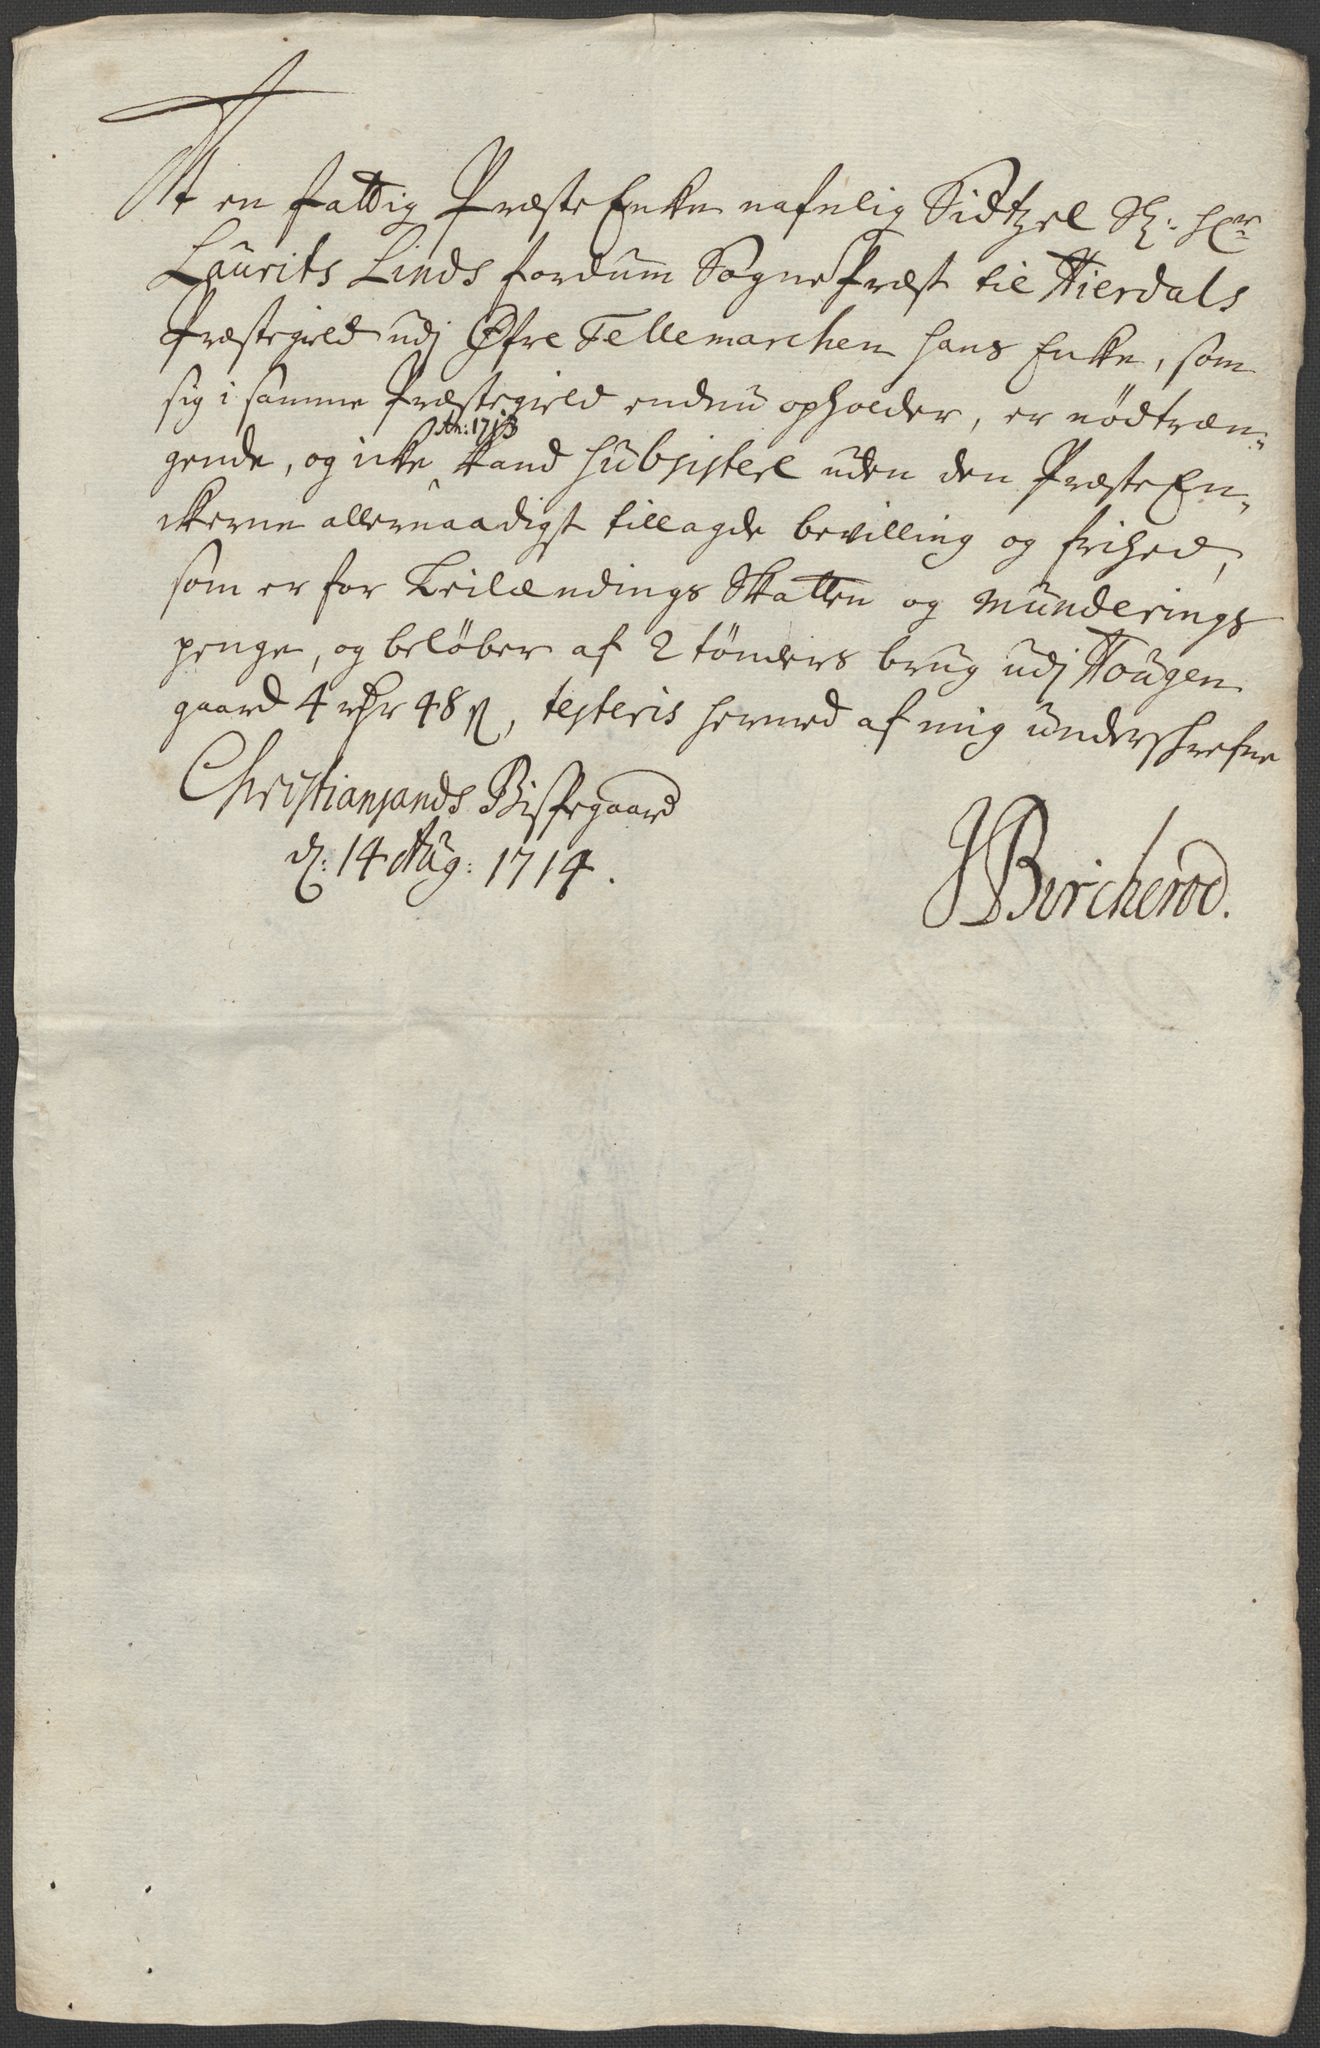 At en fattig Præste Enke nafnlig Sidtzel Sl: Hr
Laurits Linds fordum Sogne Præst til Hierdals
Præstegield udj Øfre Tellemarchen hans Enke, som
sig i samme Præstegield endnu opholder, er nødtræn-
An: 1713
gende, og icke kand subsistere uden den Præste En-
ckerne allernaadigst tillagde bevilling og frihed,
som er for Leilændings Skatten og Munderings
penge, og beløber af 2 tønders brug udj Hougen
gaard 4 rdr 48 s, testeris hermed af mig underskrefne
Christiansands Bispegaard
d: 14 Aug: 1714.
JBircherod.